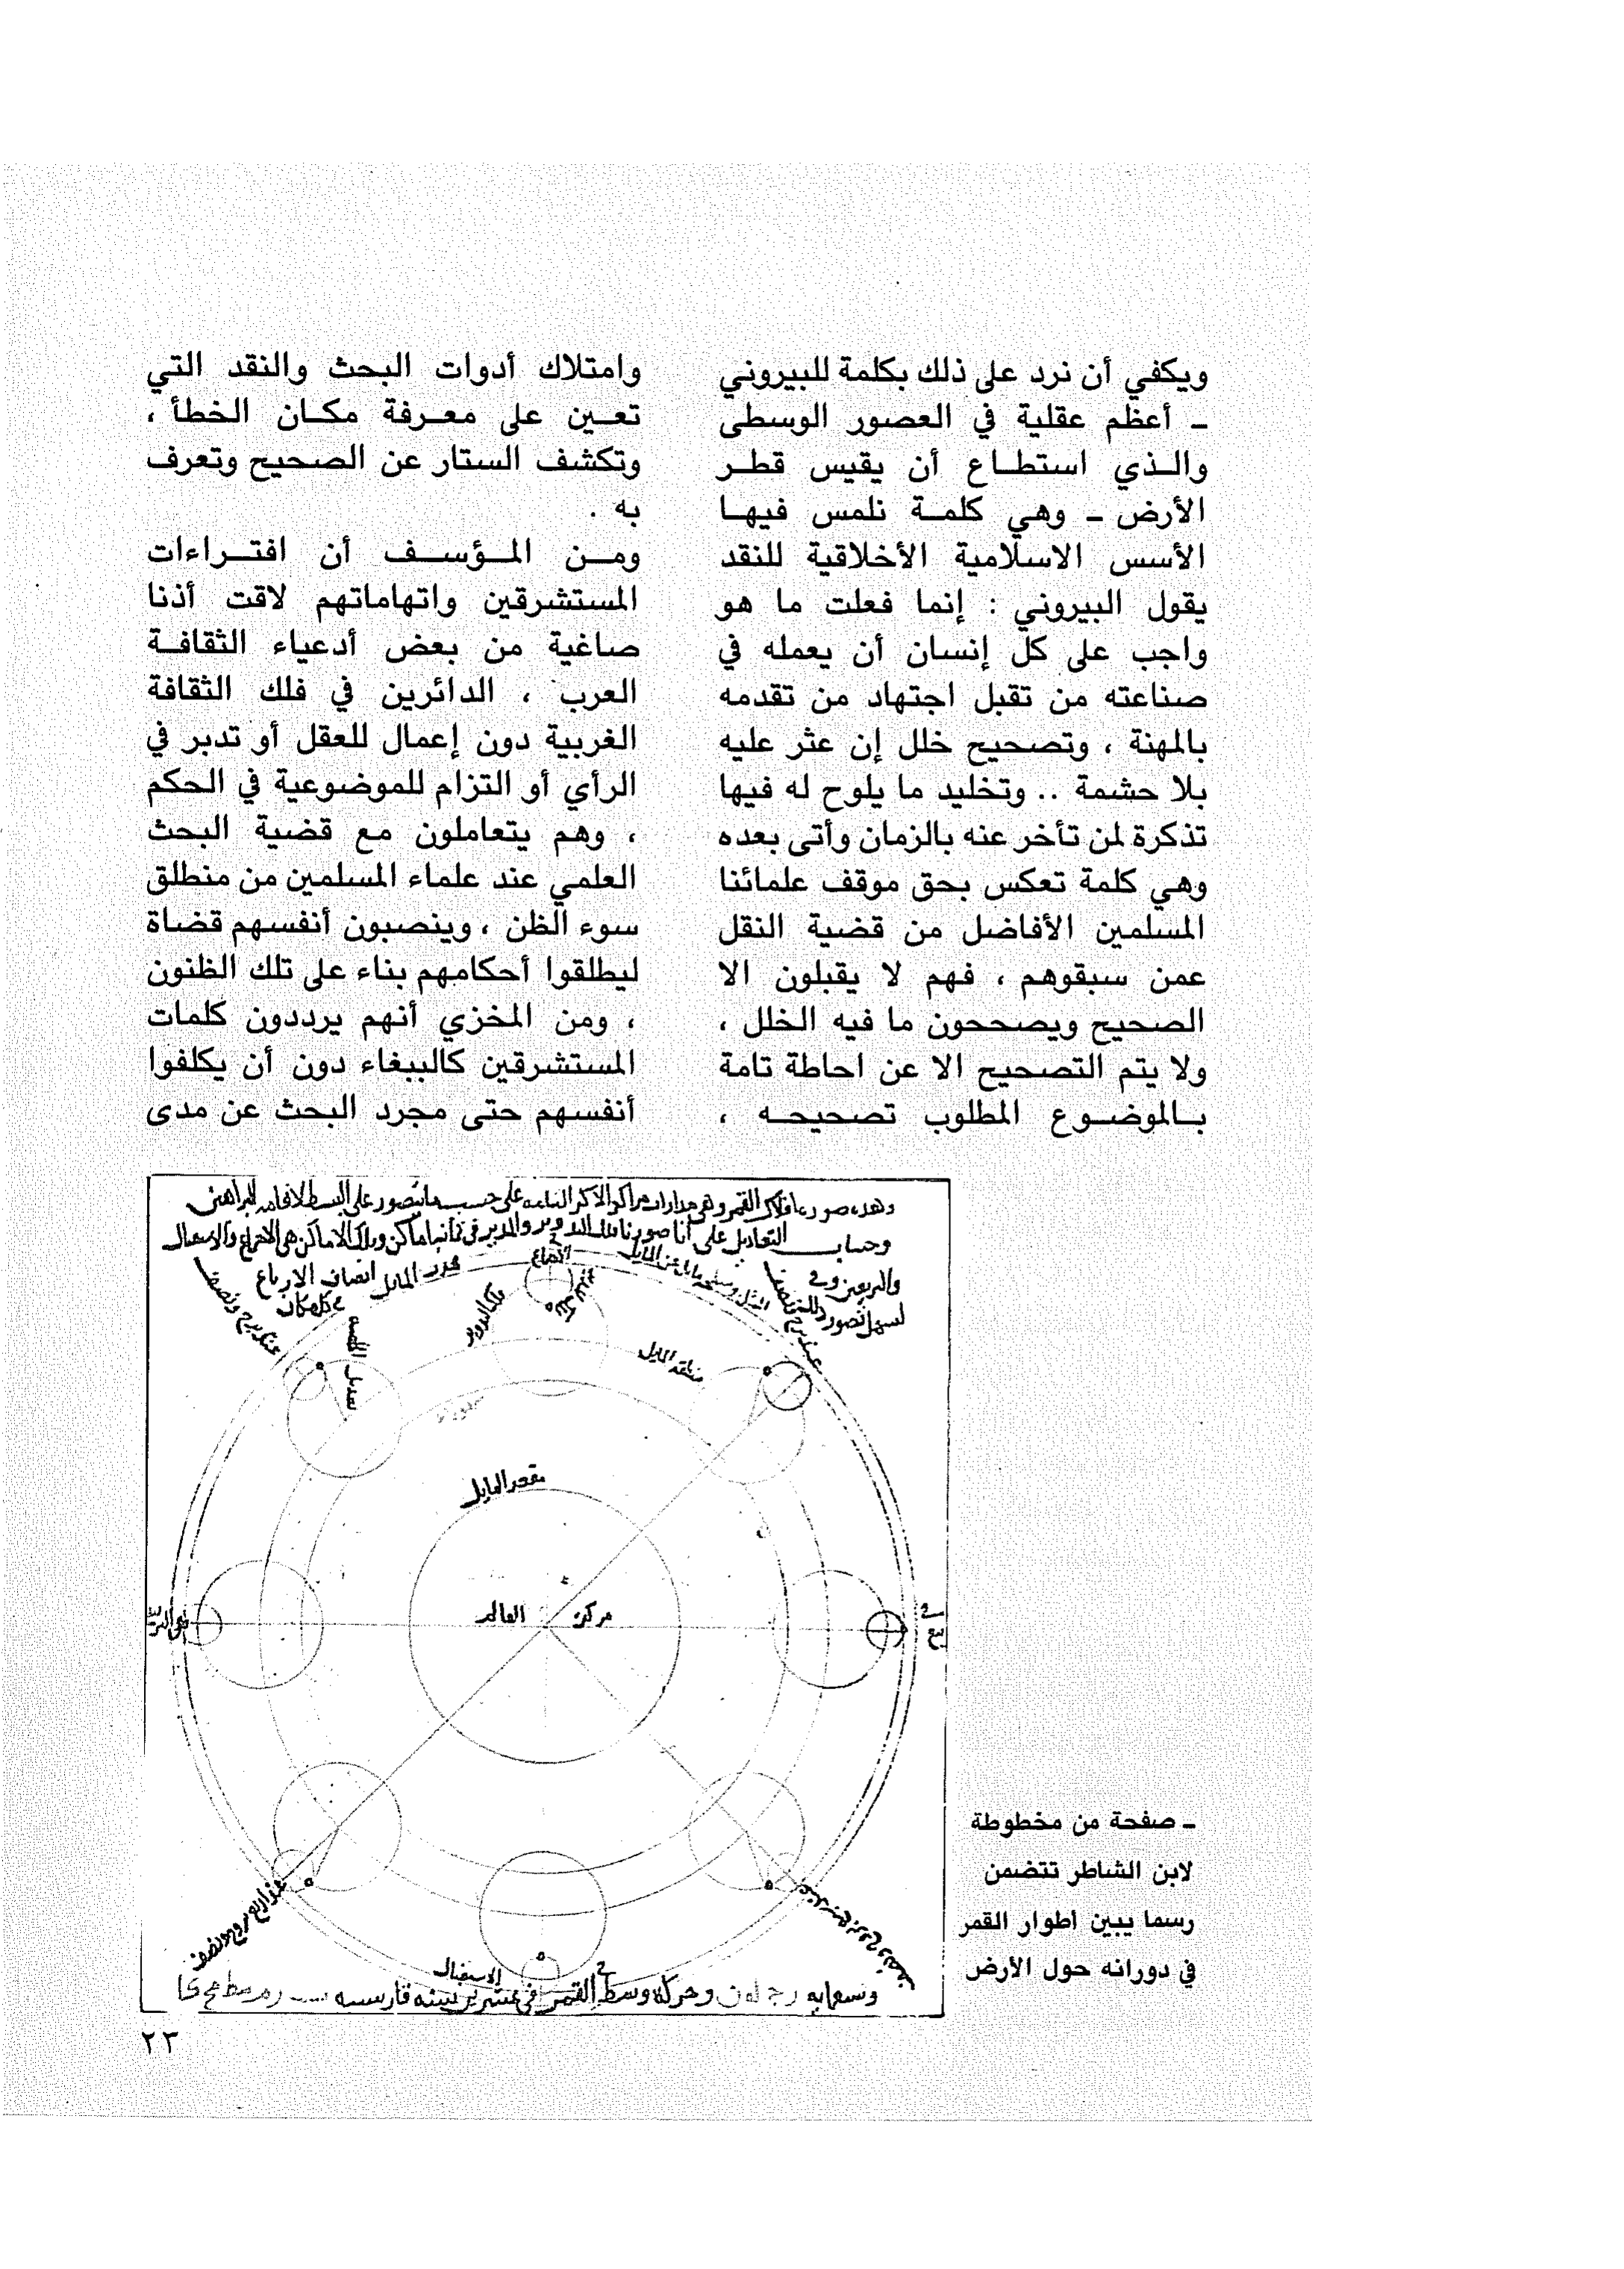 ويكفي أن نرد على ذلك بكلمة للبيروني
ـ أعظم عقلية في العصور الوسطى
والـذي استطـاع أن يقيس قطـر
الأرض ـ وهي كلمـة نلمس فيهـا
الأسس الاسلامية الأخلاقية للنقد
يقول البيروني : إنما فعلت ما هو
واجب على كل إنسان أن يعمله في
صناعته من تقبل اجتهاد من تقدمه
بالمهنة ، وتصحيح خلل إن عثر عليه
بلا حشمة .. وتخليد ما يلوح له فيها
تذكرة لمن تأخر عنه بالزمان وأتى بعده
وهي كلمة تعكس بحق موقف علمائنا
المسلمين الأفاضل من قضية النقل
عمن سبقوهم ، فهم لا يقبلون الا
الصحيح ويصححون ما فيه الخلل ،
ولا يتم التصحيح الا عن احاطة تامة
بـالموضـوع المطلوب تصحيحـه ،
وامتلاك أدوات البحث والنقد التي
تعـين على معـرفة مكـان الخطأ ،
وتكشف الستار عن الصحيح وتعرف
به .
ومـن المـؤسـف أن افتـراءات
المستشرقين واتهاماتهم لاقت أذنا
صاغية من بعض أدعياء الثقافـة
العرب ، الدائرين في فلك الثقافة
الغربية دون إعمال للعقل أو تدبر في
الرأي أو التزام للموضوعية في الحكم
، وهم يتعاملون مع قضية البحث
العلمي عند علماء المسلمين من منطلق
سوء الظن ، وينصبون أنفسهم قضاة
ليطلقوا أحكامهم بناء على تلك الظنون
، ومن المخزي أنهم يرددون كلمات
المستشرقين كالببغاء دون أن يكلفوا
أنفسهم حتى مجرد البحث عن مدى
انصاف الارباع
منطقة المايل
مقعر المايل
مركز العالم
ـ صفحة من مخطوطة
لابن الشاطر تتضمن
رسما يبين اطوار القمر
في دورانه حول الأرض
٢٣